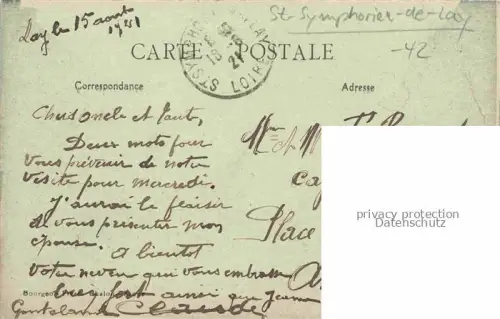 Lay le 15 août
1921
St-Symphorien-de-Lay
-42
CARTE POSTALE
ST SYMPHORIEN LAY
LOIRE
Correspondance
Adresse
Chers oncle et tante,
Deux mots pour
vous prévenir de notre
visite pour mercredi.
J'aurai le plaisir
de vous présenter mon
épouse. A bientôt
votre neveu qui vous embrasse
bien fort ainsi que Jeanne
Claude
Place
privacy protection
Datenschutz